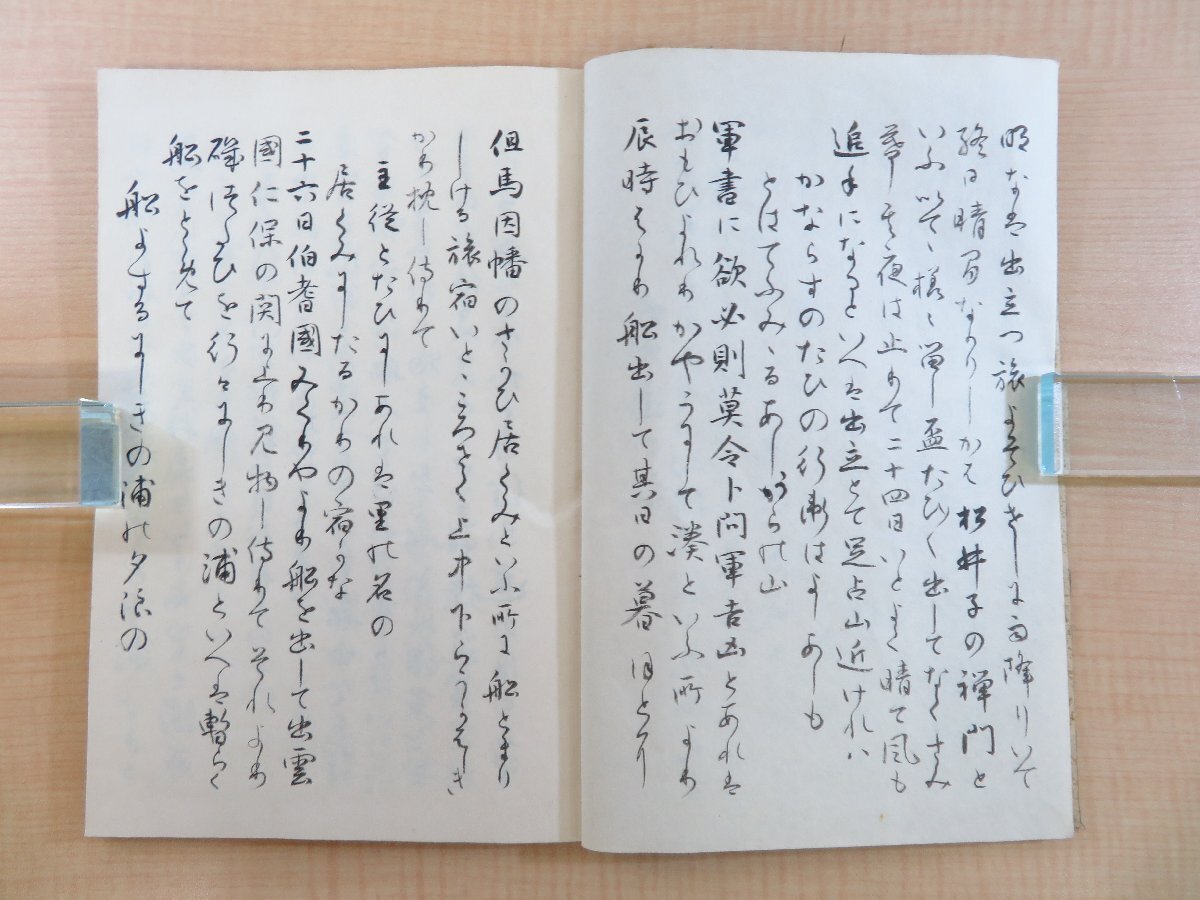 明なは出立つ旅よそひせしに雨降りいて
終日晴間なかりしかは松井子の禅門と
いふ以て様々留し盃たひ〳〵出してなくさみ
其夜は止めて二十四日いとよく晴て風も
追手になるといへは出立とて足占山近けれハ
かならすのたひの行衛はよしあしも
とはてふみゝるあしうらの山
軍書に欲必則莫令卜問軍吉凶とあれは
おもひよれりかやうにして湊といふ所より
辰時はかり船出して其日の暮ほとに
但馬因幡のさかひ居くみといふ所に船とまり
しける旅宿いと上中下らうかはしき
かり枕し侍りて
主従とたひにしあれは里の名の
居くみにしたるかりの宿かな
二十六日伯耆國みくりやより船を出して出雲
國仁保の関に上り見物し侍りてそれより
磯つたひを行けにしきの浦といへは暫らく
船をとめて
船よするにしきの浦の夕浪の